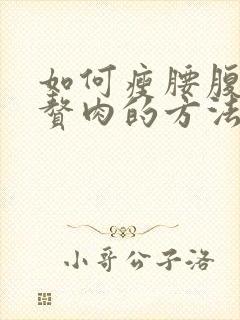 如何瘦腰腹
赘肉的方法
小哥公子洛